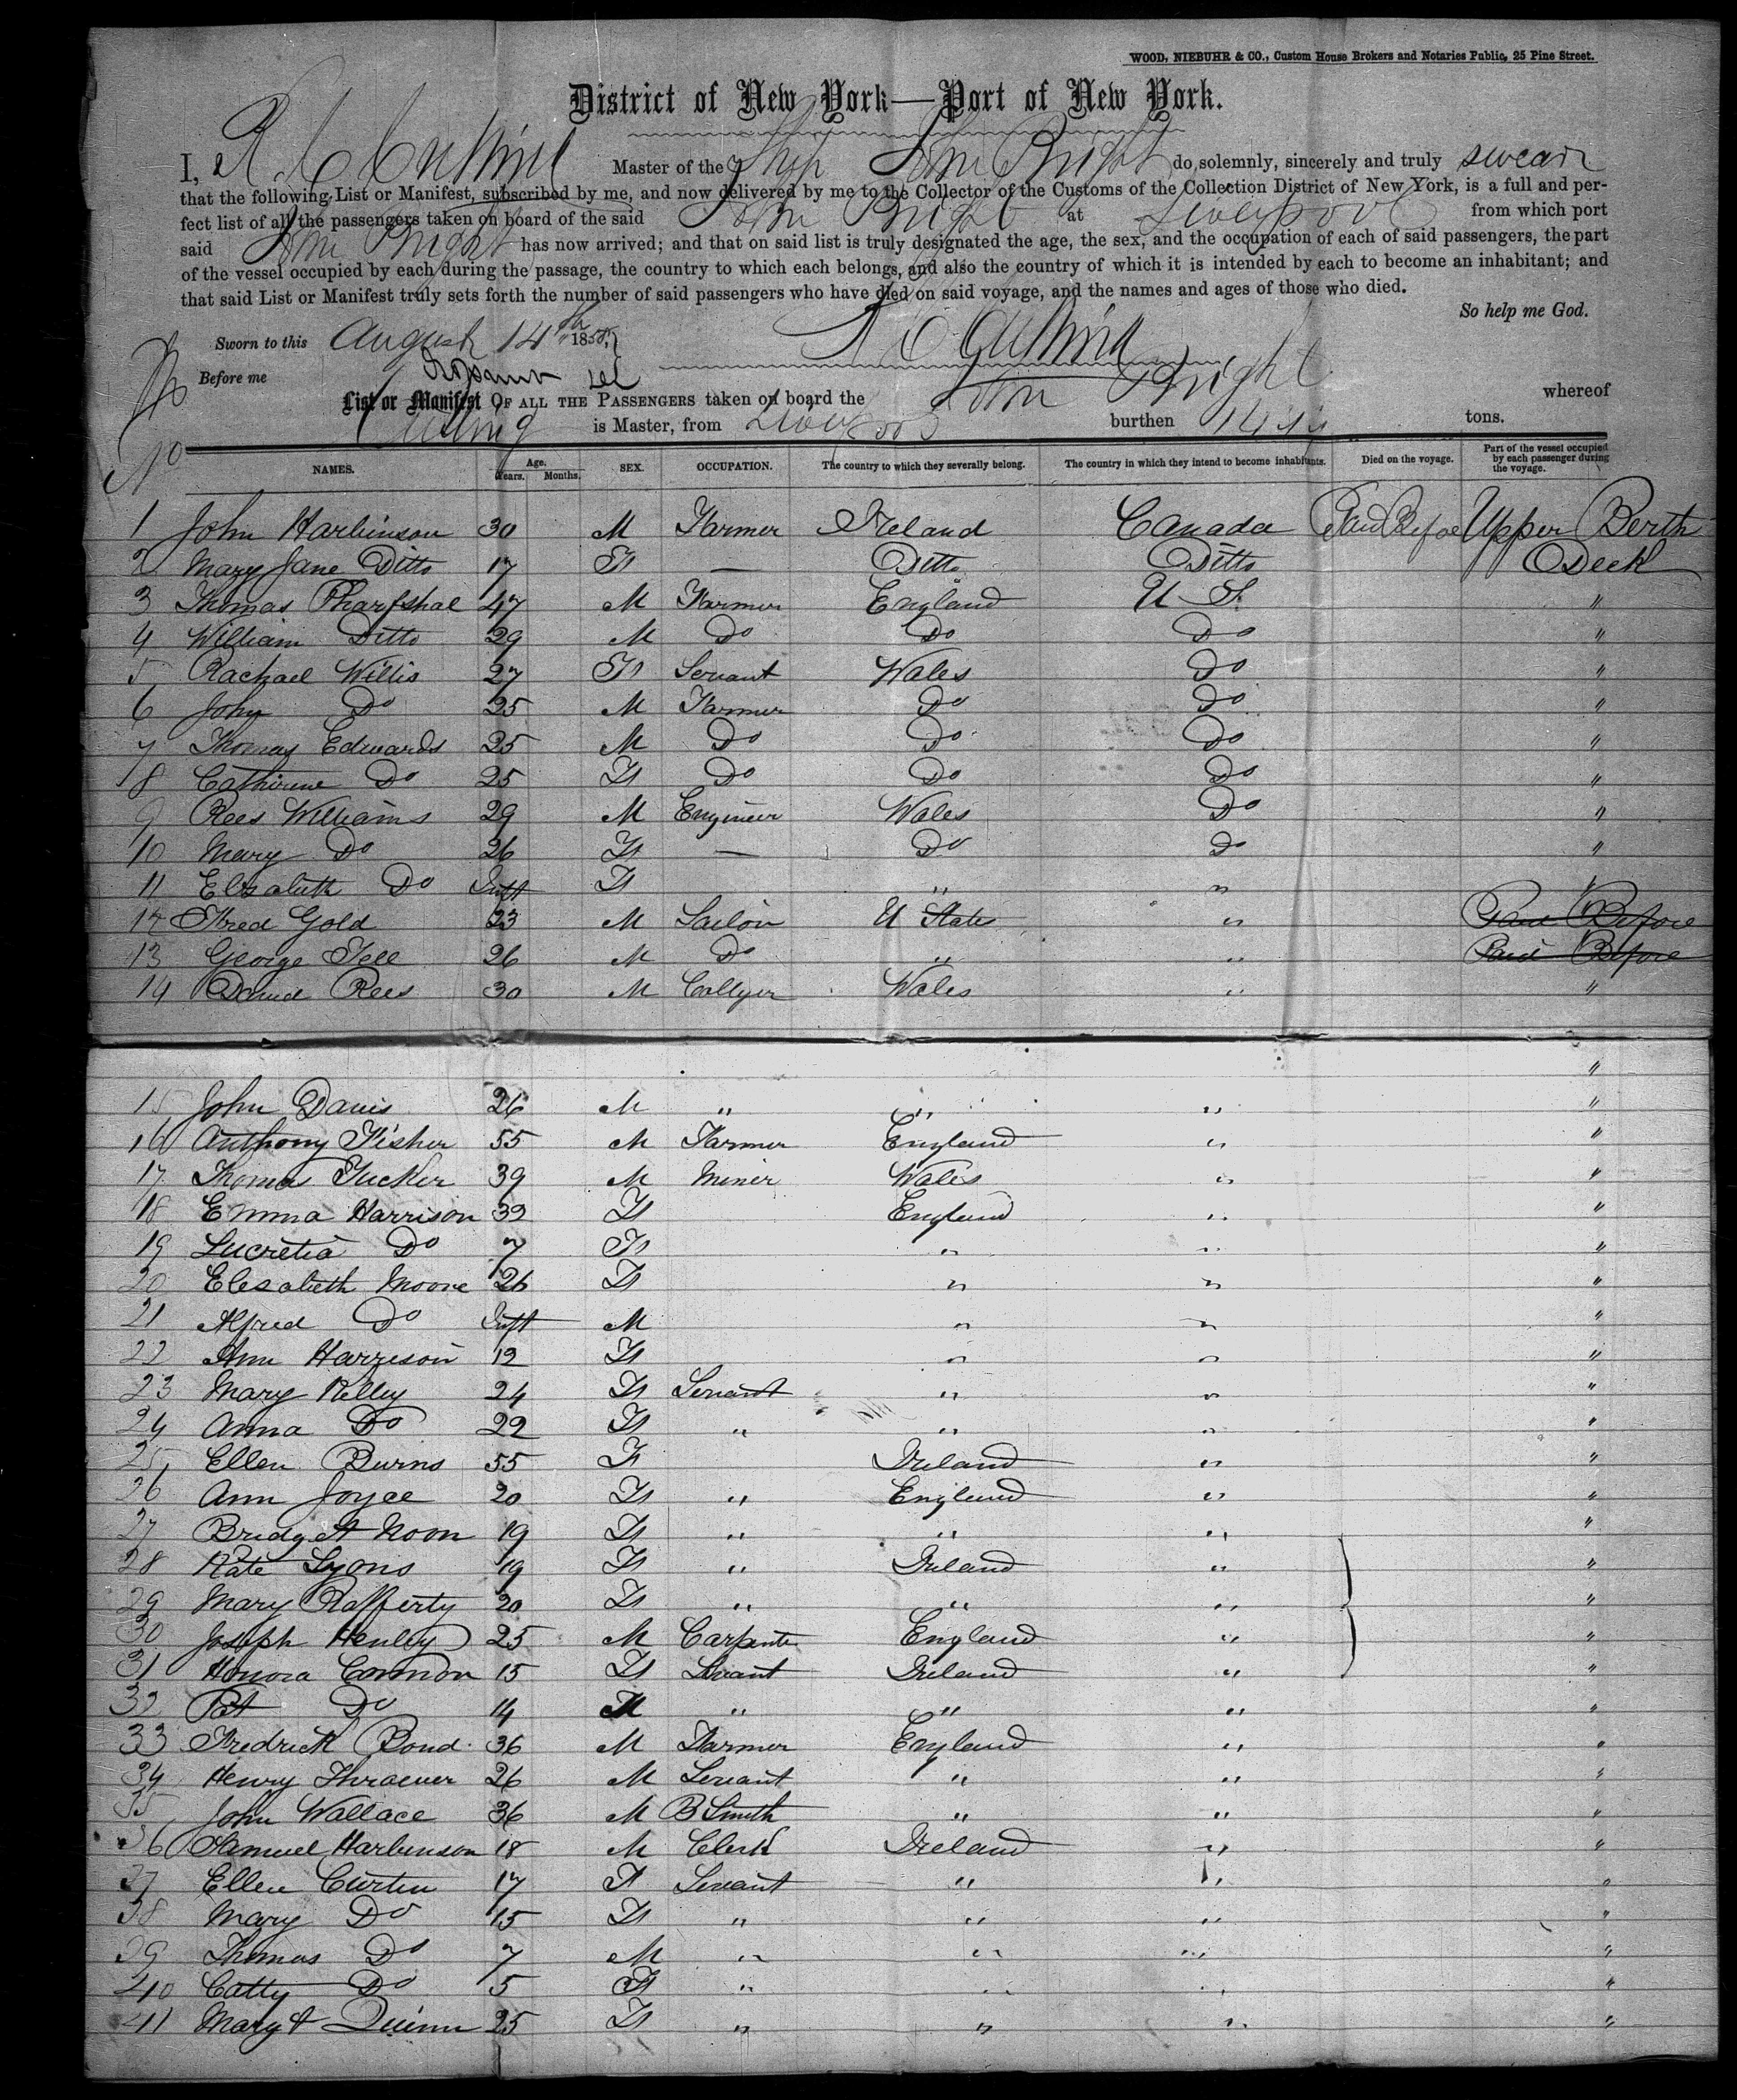 WOOD, NIEBUHR & CO., Custom House Brokers and Notaries Public, 25 Pine Street.
District of New York—Port of New York.
I, R. C. Master of the Ship John Bright do solemnly, sincerely and truly swear
that the following List or Manifest, subscribed by me, and now delivered by me to the Collector of the Customs of the Collection District of New York, is a full and per-
fect list of all the passengers taken on board of the said John Bright at Liverpool from which port
said John Bright has now arrived; and that on said list is truly designated the age, the sex, and the occupation of each of said passengers, the part
of the vessel occupied by each during the passage, the country to which each belongs, and also the country of which it is intended by each to become an inhabitant; and
that said List or Manifest truly sets forth the number of said passengers who have died on said voyage, and the names and ages of those who died.
So help me God.
Sworn to this August 14th 1858.
Before me
List or Manifest OF ALL THE PASSENGERS taken on board the John Bright whereof
is Master, from Liverpool burthen tons.
No NAMES. Age. Years. Months. SEX. OCCUPATION. The country to which they severally belong. The country in which they intend to become inhabitants. Died on the voyage. Part of the vessel occupied by each passenger during the voyage.
1 John Harbinson 30 M Farmer Ireland Canada Paid Before Upper Berth
2 Mary Jane Ditto 17 F — Ditto Ditto Deck
3 Thomas 47 M Farmer England U S. "
4 William Ditto 29 M Do Do Do "
5 Rachael Willis 27 F Servant Wales Do "
6 John Do 25 M Farmer Do Do "
7 Thomas Edwards 25 M Do Do Do "
8 Catherine Do 25 F Do Do Do "
9 Rees Williams 29 M Engineer Wales Do "
10 Mary Do 26 F — Do Do "
11 Elisabeth Do Inft F " " "
12 Fred Gold 23 M Sailor U States " Paid Before
13 George Tell 26 M Do " " Paid Before
14 David Rees 30 M Collyer Wales " "
"
15 John Davis 26 M " " " "
16 Anthony Fisher 55 M Farmer England " "
17 Thomas Tucker 39 M Miner Wales " "
18 Emma Harrison 39 F England " "
19 Lucretia Do 7 F " " "
20 Elesabeth Moore 26 F " " "
21 Alfred Do Inft M " " "
22 Ann Harrison 19 F " " "
23 Mary Kelly 24 F Servant " " "
24 Anna Do 22 F " " " "
25 Ellen Burns 55 F Ireland " "
26 Ann Joyce 20 F " England " "
27 Bridget Noon 19 F " " " "
28 Kate Lyons 19 F " Ireland " "
29 Mary Rafferty 20 F " " " "
30 Joseph Henley 25 M Carpente England " "
31 Honora Connon 15 F Servant Ireland " "
32 Pat Do 14 M " " " "
33 Fredrick Bond 36 M Farmer England " "
34 Henry 26 M Servant " " "
35 John Wallace 36 M B Smith " " "
36 Samuel Harbinson 18 M Clerk Ireland " "
37 Ellen Curten 17 F Servant " " "
38 Mary Do 15 F " " " "
39 Thomas Do 7 M " " " "
40 Catty Do 5 F " " " "
41 Maryt Quinn 25 F " " " "